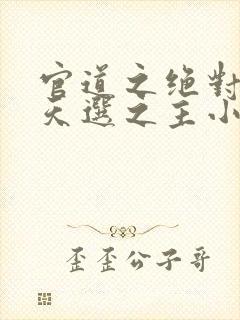 官道之绝對
天選之主小
歪歪公子哥